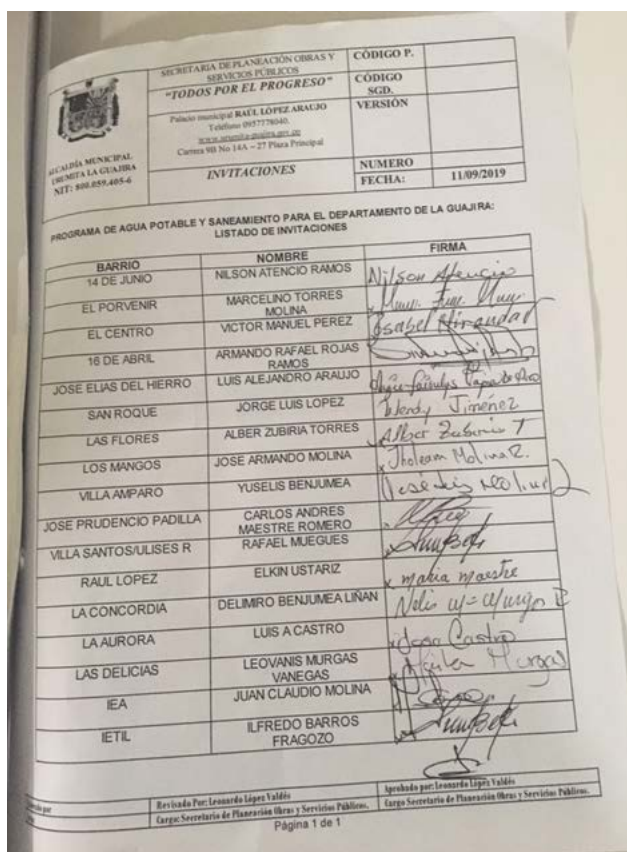 ALCALDÍA MUNICIPAL
URUMITA LA GUAJIRA
NIT: 800.059.405-6
SECRETARIA DE PLANEACIÓN OBRAS Y
SERVICIOS PÚBLICOS
"TODOS POR EL PROGRESO"
Palacio municipal RAÚL LÓPEZ ARAUJO
Teléfono 0957778040.
www.urumita-guajira.gov.co
Carrera 9B No 14A – 27 Plaza Principal
INVITACIONES
CÓDIGO P.
CÓDIGO
SGD.
VERSIÓN
NUMERO
FECHA: 11/09/2019
PROGRAMA DE AGUA POTABLE Y SANEAMIENTO PARA EL DEPARTAMENTO DE LA GUAJIRA:
LISTADO DE INVITACIONES
BARRIO NOMBRE FIRMA
14 DE JUNIO NILSON ATENCIO RAMOS Nilson Atencio
EL PORVENIR MARCELINO TORRES
MOLINA
EL CENTRO VICTOR MANUEL PEREZ Isabel Miranda
16 DE ABRIL ARMANDO RAFAEL ROJAS
RAMOS
JOSE ELIAS DEL HIERRO LUIS ALEJANDRO ARAUJO
SAN ROQUE JORGE LUIS LOPEZ Wendy Jimenez
LAS FLORES ALBER ZUBIRIA TORRES Alber Zubiria T
LOS MANGOS JOSE ARMANDO MOLINA Molina R.
VILLA AMPARO YUSELIS BENJUMEA
JOSE PRUDENCIO PADILLA CARLOS ANDRES
MAESTRE ROMERO
VILLA SANTOS/ULISES R RAFAEL MUEGUES
RAUL LOPEZ ELKIN USTARIZ x maria maestre
LA CONCORDIA DELIMIRO BENJUMEA LIÑAN
LA AURORA LUIS A CASTRO Castro
LAS DELICIAS LEOVANIS MURGAS
VANEGAS Murgas
IEA JUAN CLAUDIO MOLINA
IETIL ILFREDO BARROS
FRAGOZO
Revisado Por: Leonardo López Valdés
Cargo: Secretario de Planeación Obras y Servicios Públicos.
Aprobado por: Leonardo López Valdés
Cargo Secretario de Planeación Obras y Servicios Públicos.
Página 1 de 1